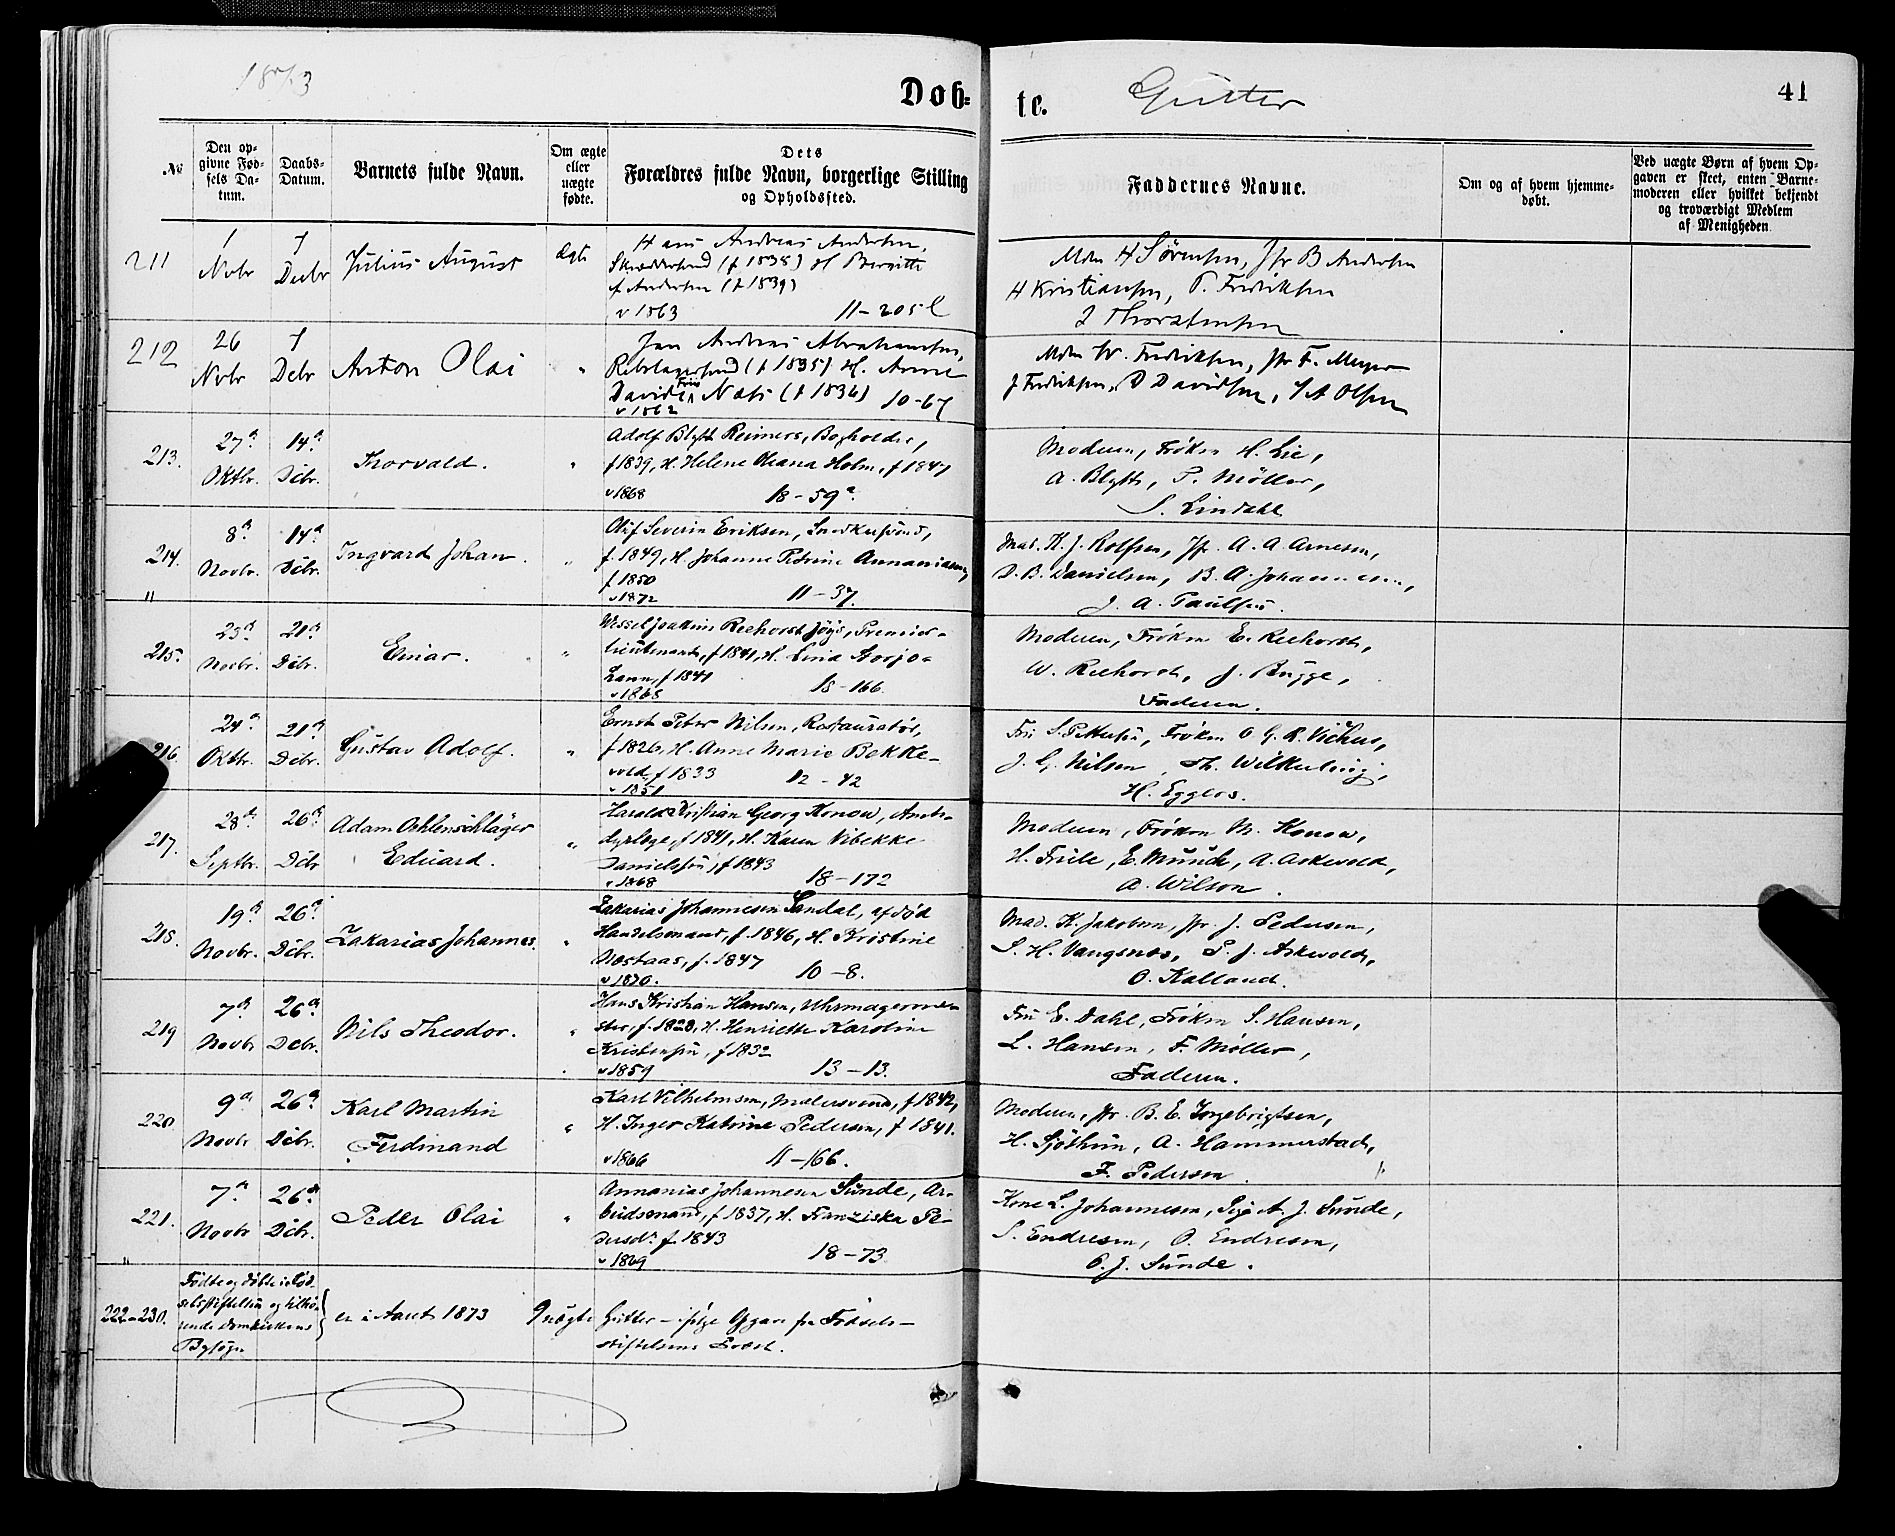 1873
Døb-
te.
Gutter
41
№
Den op-
givne Fød-
sels Da-
tum.
Daabs-
Datum.
Barnets fulde Navn.
Om ægte
eller
uægte
fødte.
Dets
Forældres fulde Navn, borgerlige Stilling
og Opholdssted.
Faddernes Navne.
Om og af hvem hjemme-
døbt.
Ved uægte Børn af hvem Op-
gaven er skeet, enten Barne-
moderen eller hvilket bekjendt
og troværdigt Medlem
af Menigheden.
211
1
Novbr
7
Decbr
Julius August
Ægte
Hans Andreas Andersen,
Skræddersvend (f 1838) H Beritte
f Andersen (f 1839)
v 1863 11-205 l
Mdm H Sørensen, Jfr B Andersen
H Kristiansen, P. Fredriksen
J Thorstensen
212
26
Novbr
7
Debr
Anton Olai
"
Jan Andreas Abrahamsen,
Rebslagersvend (f 1835) H. Anne
Davidsen Næss (f 1836) 10-67
v 1862
Mdm W. Fredriksen, Jfr F. Meyer
J Fredriksen, D Davidsen, J A Olsen
213.
27d
Oktbr.
14d
Dcbr.
Thorvald.
"
Adolf Blytt Reimers, Bogholder,
f 1839, H. Helene Oleana Holm, f 1847
v 1868 18-59a
Moderen, Frøken H. Lie,
A. Blytt, P. Møller,
S. Lindahl
214.
"
8d
Novbr.
14d
Dcbr.
Ingvard Johan.
"
Oluf Severin Eriksen, Snedkersvend,
f. 1849, H. Johanne Petrine Annaniasen,
f 1850
v 1872 11-37.
Mad. K. J. Rolfsen, Jfr. A. A. Arnesen,
D. B. Danielsen, B. A. Johannesen,
J. A. Paulsen.
215.
23d
Novbr.
21d
Dcbr.
Einar.
"
Wessel Joakim Reehorst Jøys, Premier-
lieutenant, f 1841, H. Lina Storjo-
hann, f 1841
v 1868 18-166.
Moderen, Frøken E. Reehorst,
W. Reehorst, J. Bugge,
Faderen.
216.
24d
Oktbr.
21d
Dcbr.
Gustav Adolf.
"
Ernst Peter Nilsen, Restauratør,
f 1826, H. Anne Marie Bekke-
vold, f 1833 12-42
v 1851
Fru S. Pettersen, Frøken O G. R.
J. G. Nilsen
H. Eggers.
217.
28d
Septbr.
26d
Dcbr
Adam Oehlenschläger
Eduard.
"
Harald Kristian Georg Konow, Amts-
dyrlæge, f 1841, H. Karen Vibekke
Danielsen, f 1843
v 1868 18-172
Moderen, Frøken M. Konow,
H. Friele, E. Munch, A. Askevold,
A. Wilson.
218.
19d
Novbr.
26d
Dcbr.
Zakarias Johannes.
"
Zakarias Johannesen Sandal, afdød
Handelsmand, f. 1846, H. Kristine
Nøstaas, f. 1847
v 1870. 10-8.
Mad. K. Jakobsen, Jfr. J. Pedersen,
S. H. Vangsnes, P. J. Askevold,
O. Kalland.
219
7d
Novbr
26d
Dcbr.
Nils Theodor.
"
Hans Kristian Hansen, Uhrmagerme-
ster, f. 1828, H. Henriette Karoline
Kristensen, f 1832
v 1859 13-13.
Fru E. Dahl, Frøken S. Hansen,
L. Hansen, F. Møller,
Faderen.
220
9d
Novbr
26d
Dcbr.
Karl Martin
Ferdinand
"
Karl Vilhelmsen, Malersvend, f 1842,
H. Inger Katrine Pedersen, f 1841.
v 1866 11-166.
Moderen, Jfr. B. E. Ingebrigtsen,
H. Sjøthun, A. Hammerstad,
F. Pedersen.
221.
"
7d
Novbr
26d
Dcbr.
Peder Olai
"
Annanias Johannesen Sunde, Ar-
beidsmand, f 1837, H. Franziska Pe-
dersdr. f. 1843
v 1869 18-73.
Kone L. Johannesen, Pige A. J. Sunde,
S. Endresen, O. Endresen,
O. J. Sunde.
222-230.
Fødte og døbte i Fød-
selsstiftelsen og tilhø-
rende Domkirkens
Bysogn
er i Aaret 1873
9 uægte
Gutter - ifølge Opgave fra Fødsels-
stiftelsens Præst.